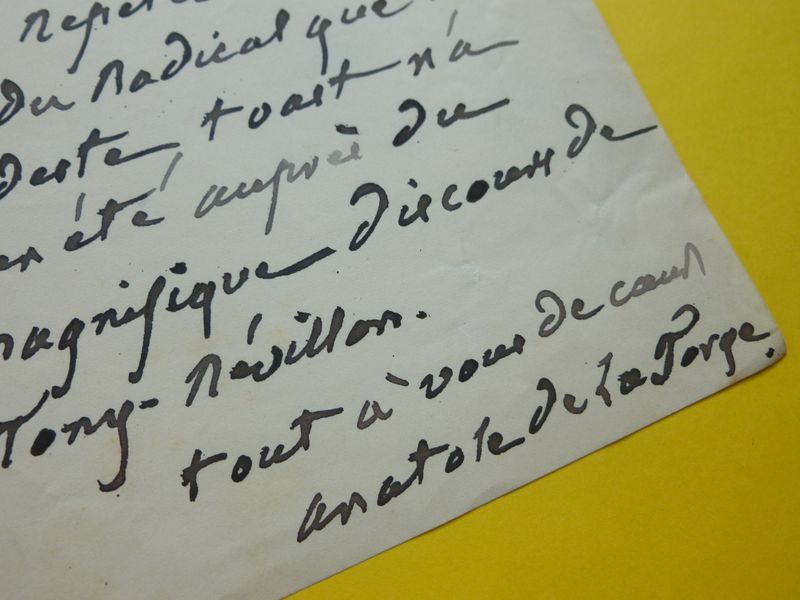 du Radical que
deste toast n'a
en été auprès du
magnifique discours de
Tony-Révillon.
tout à vous de cœur
anatole de la Forge.